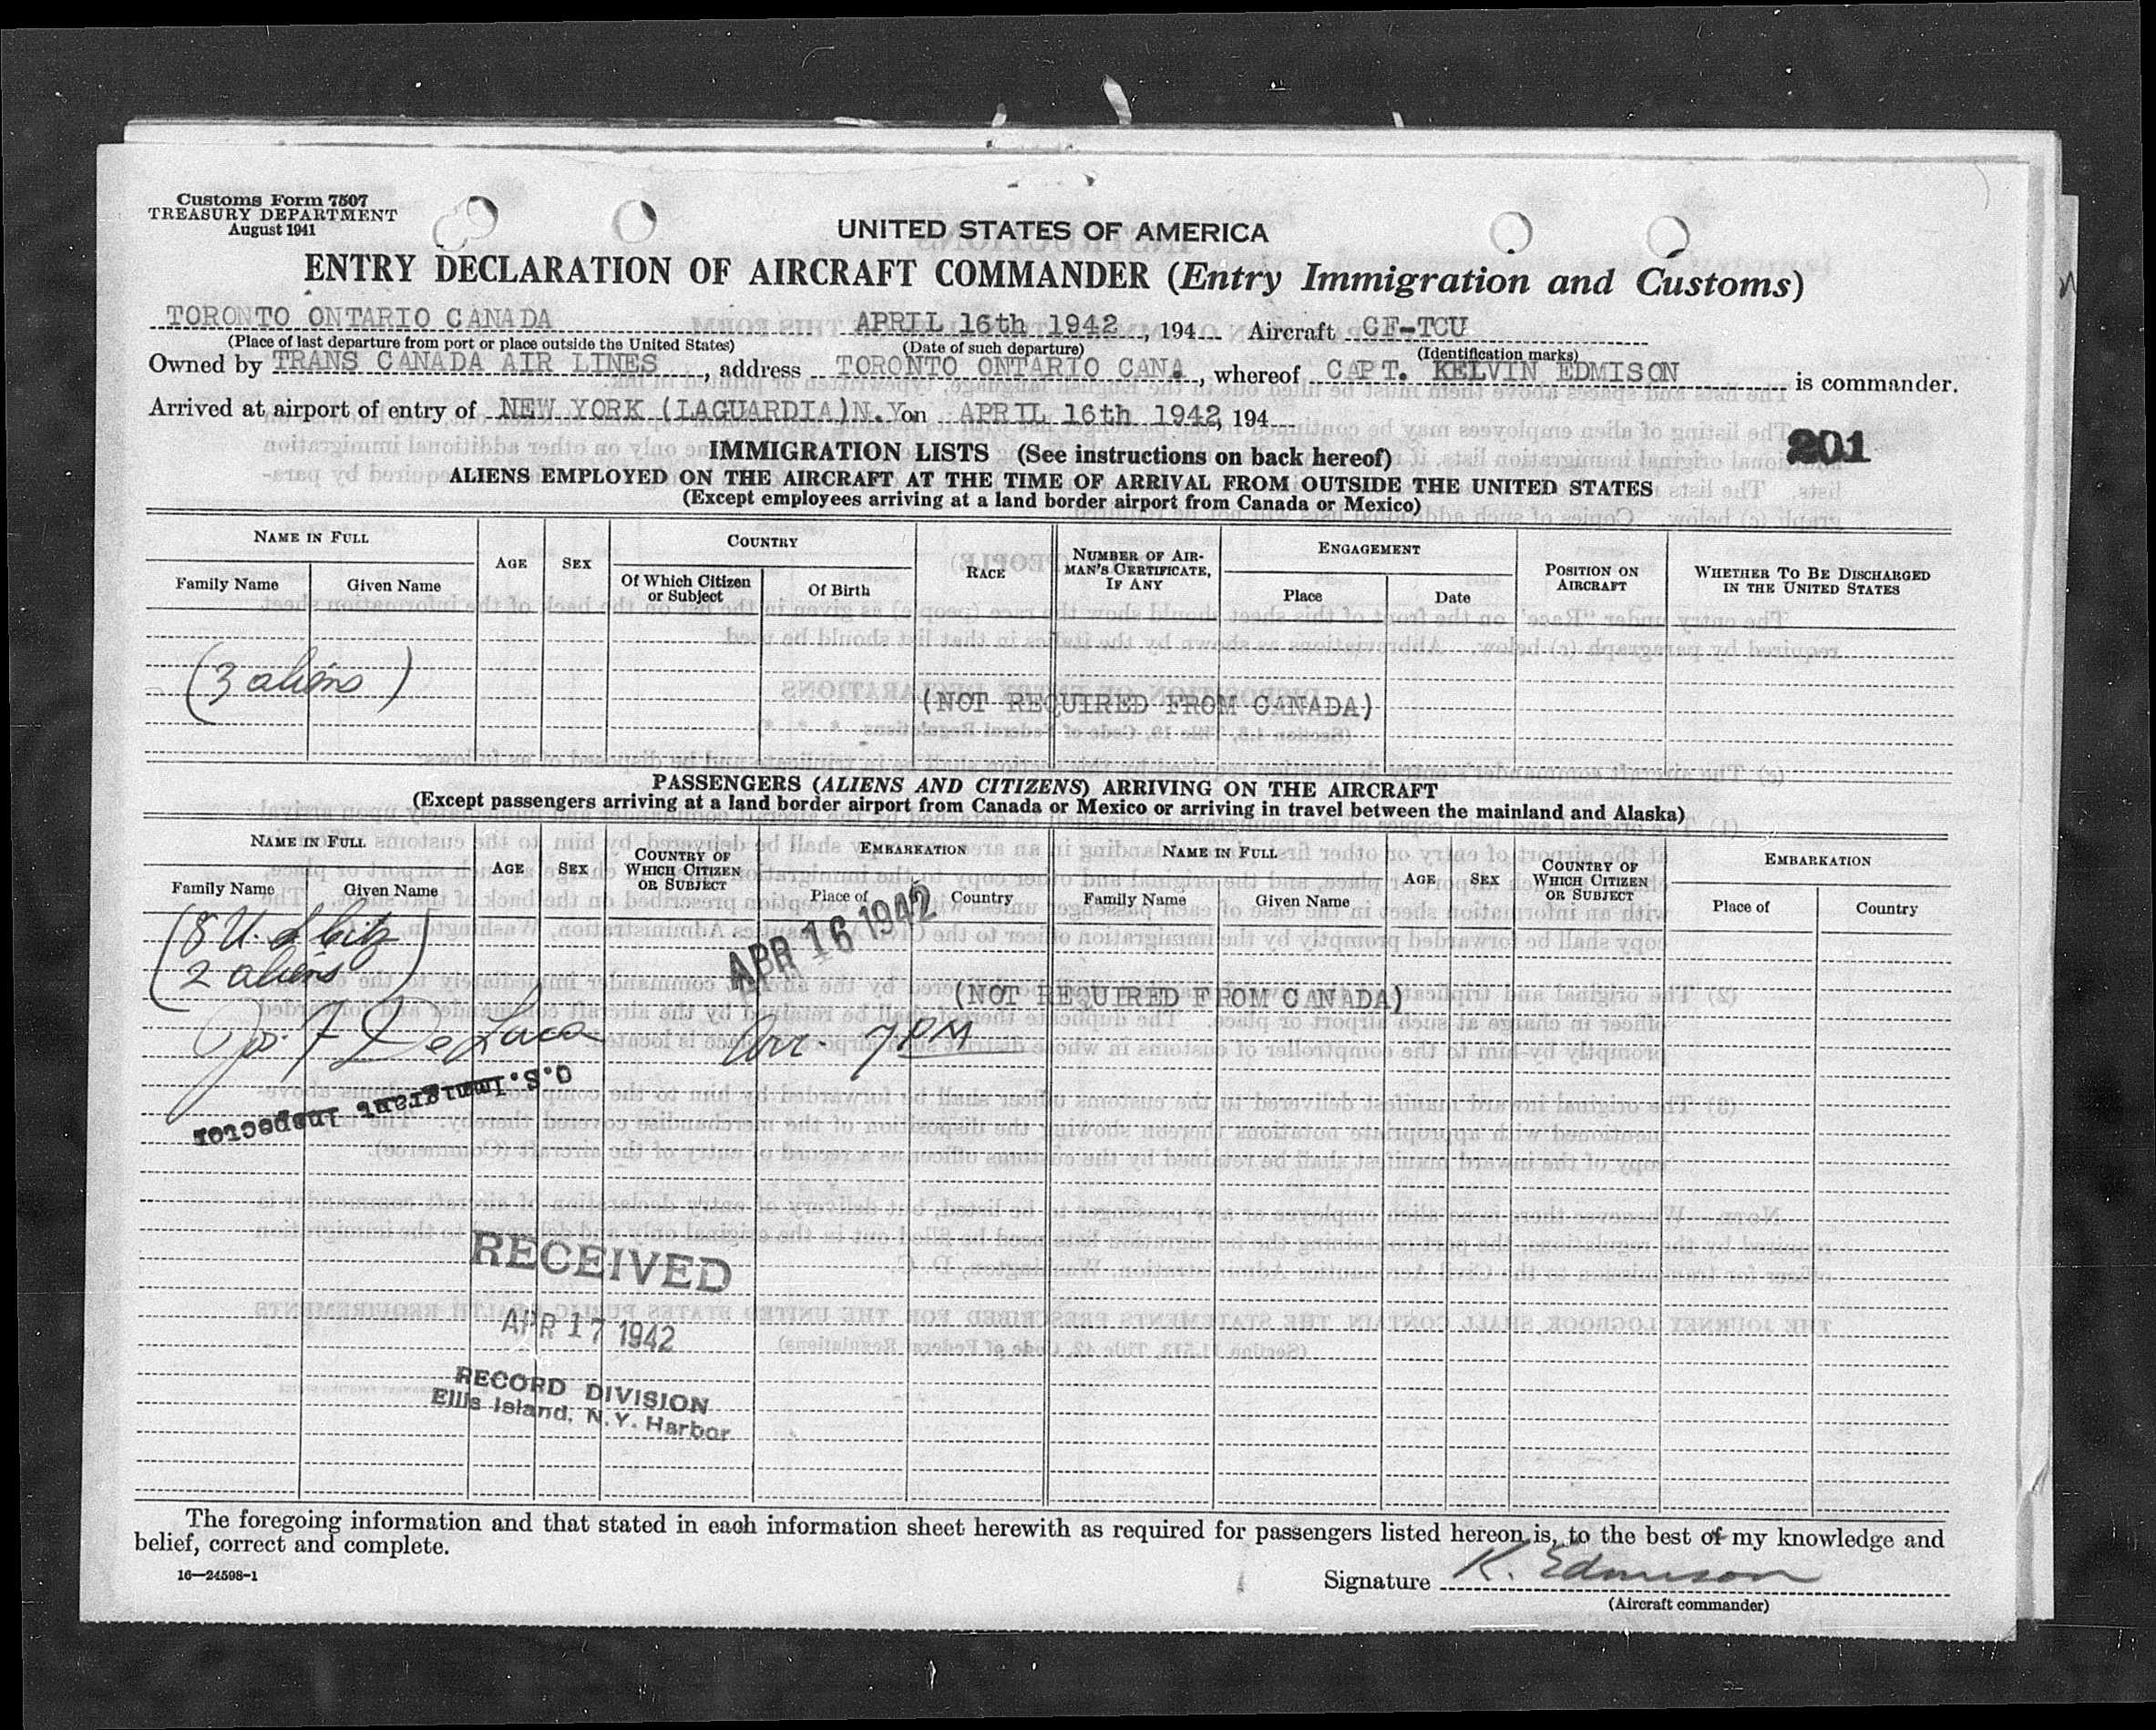 Customs Form 7507
TREASURY DEPARTMENT
August 1941
UNITED STATES OF AMERICA
ENTRY DECLARATION OF AIRCRAFT COMMANDER (Entry Immigration and Customs)
TORONTO ONTARIO CANADA APRIL 16th 1942, 194 Aircraft CF-TCU
(Place of last departure from port or place outside the United States) (Date of such departure) (Identification marks)
Owned by TRANS CANADA AIR LINES, address TORONTO ONTARIO CANA, whereof CAPT. KELVIN EDMISON is commander.
Arrived at airport of entry of NEW YORK (LAGUARDIA)N.Y on APRIL 16th 1942, 194
201
IMMIGRATION LISTS (See instructions on back hereof)
ALIENS EMPLOYED ON THE AIRCRAFT AT THE TIME OF ARRIVAL FROM OUTSIDE THE UNITED STATES
(Except employees arriving at a land border airport from Canada or Mexico)
NAME IN FULL AGE SEX COUNTRY RACE NUMBER OF AIRMAN'S CERTIFICATE, IF ANY ENGAGEMENT POSITION ON AIRCRAFT WHETHER TO BE DISCHARGED IN THE UNITED STATES
Family Name Given Name Of Which Citizen or Subject Of Birth Place Date
(3 aliens)
(NOT REQUIRED FROM CANADA)
PASSENGERS (ALIENS AND CITIZENS) ARRIVING ON THE AIRCRAFT
(Except passengers arriving at a land border airport from Canada or Mexico or arriving in travel between the mainland and Alaska)
NAME IN FULL AGE SEX COUNTRY OF WHICH CITIZEN OR SUBJECT EMBARKATION NAME IN FULL AGE SEX COUNTRY OF WHICH CITIZEN OR SUBJECT EMBARKATION
Family Name Given Name Place of Country Family Name Given Name Place of Country
(8 U. S. Citz
2 aliens)
APR 16 1942
(NOT REQUIRED FROM CANADA)
Jos. F DeLuca
Arr. 7 PM
U.S. Immigrant Inspector
RECEIVED
APR 17 1942
RECORD DIVISION
Ellis Island, N.Y. Harbor
The foregoing information and that stated in each information sheet herewith as required for passengers listed hereon is, to the best of my knowledge and
belief, correct and complete.
16—24598-1
Signature K. Edmison
(Aircraft commander)